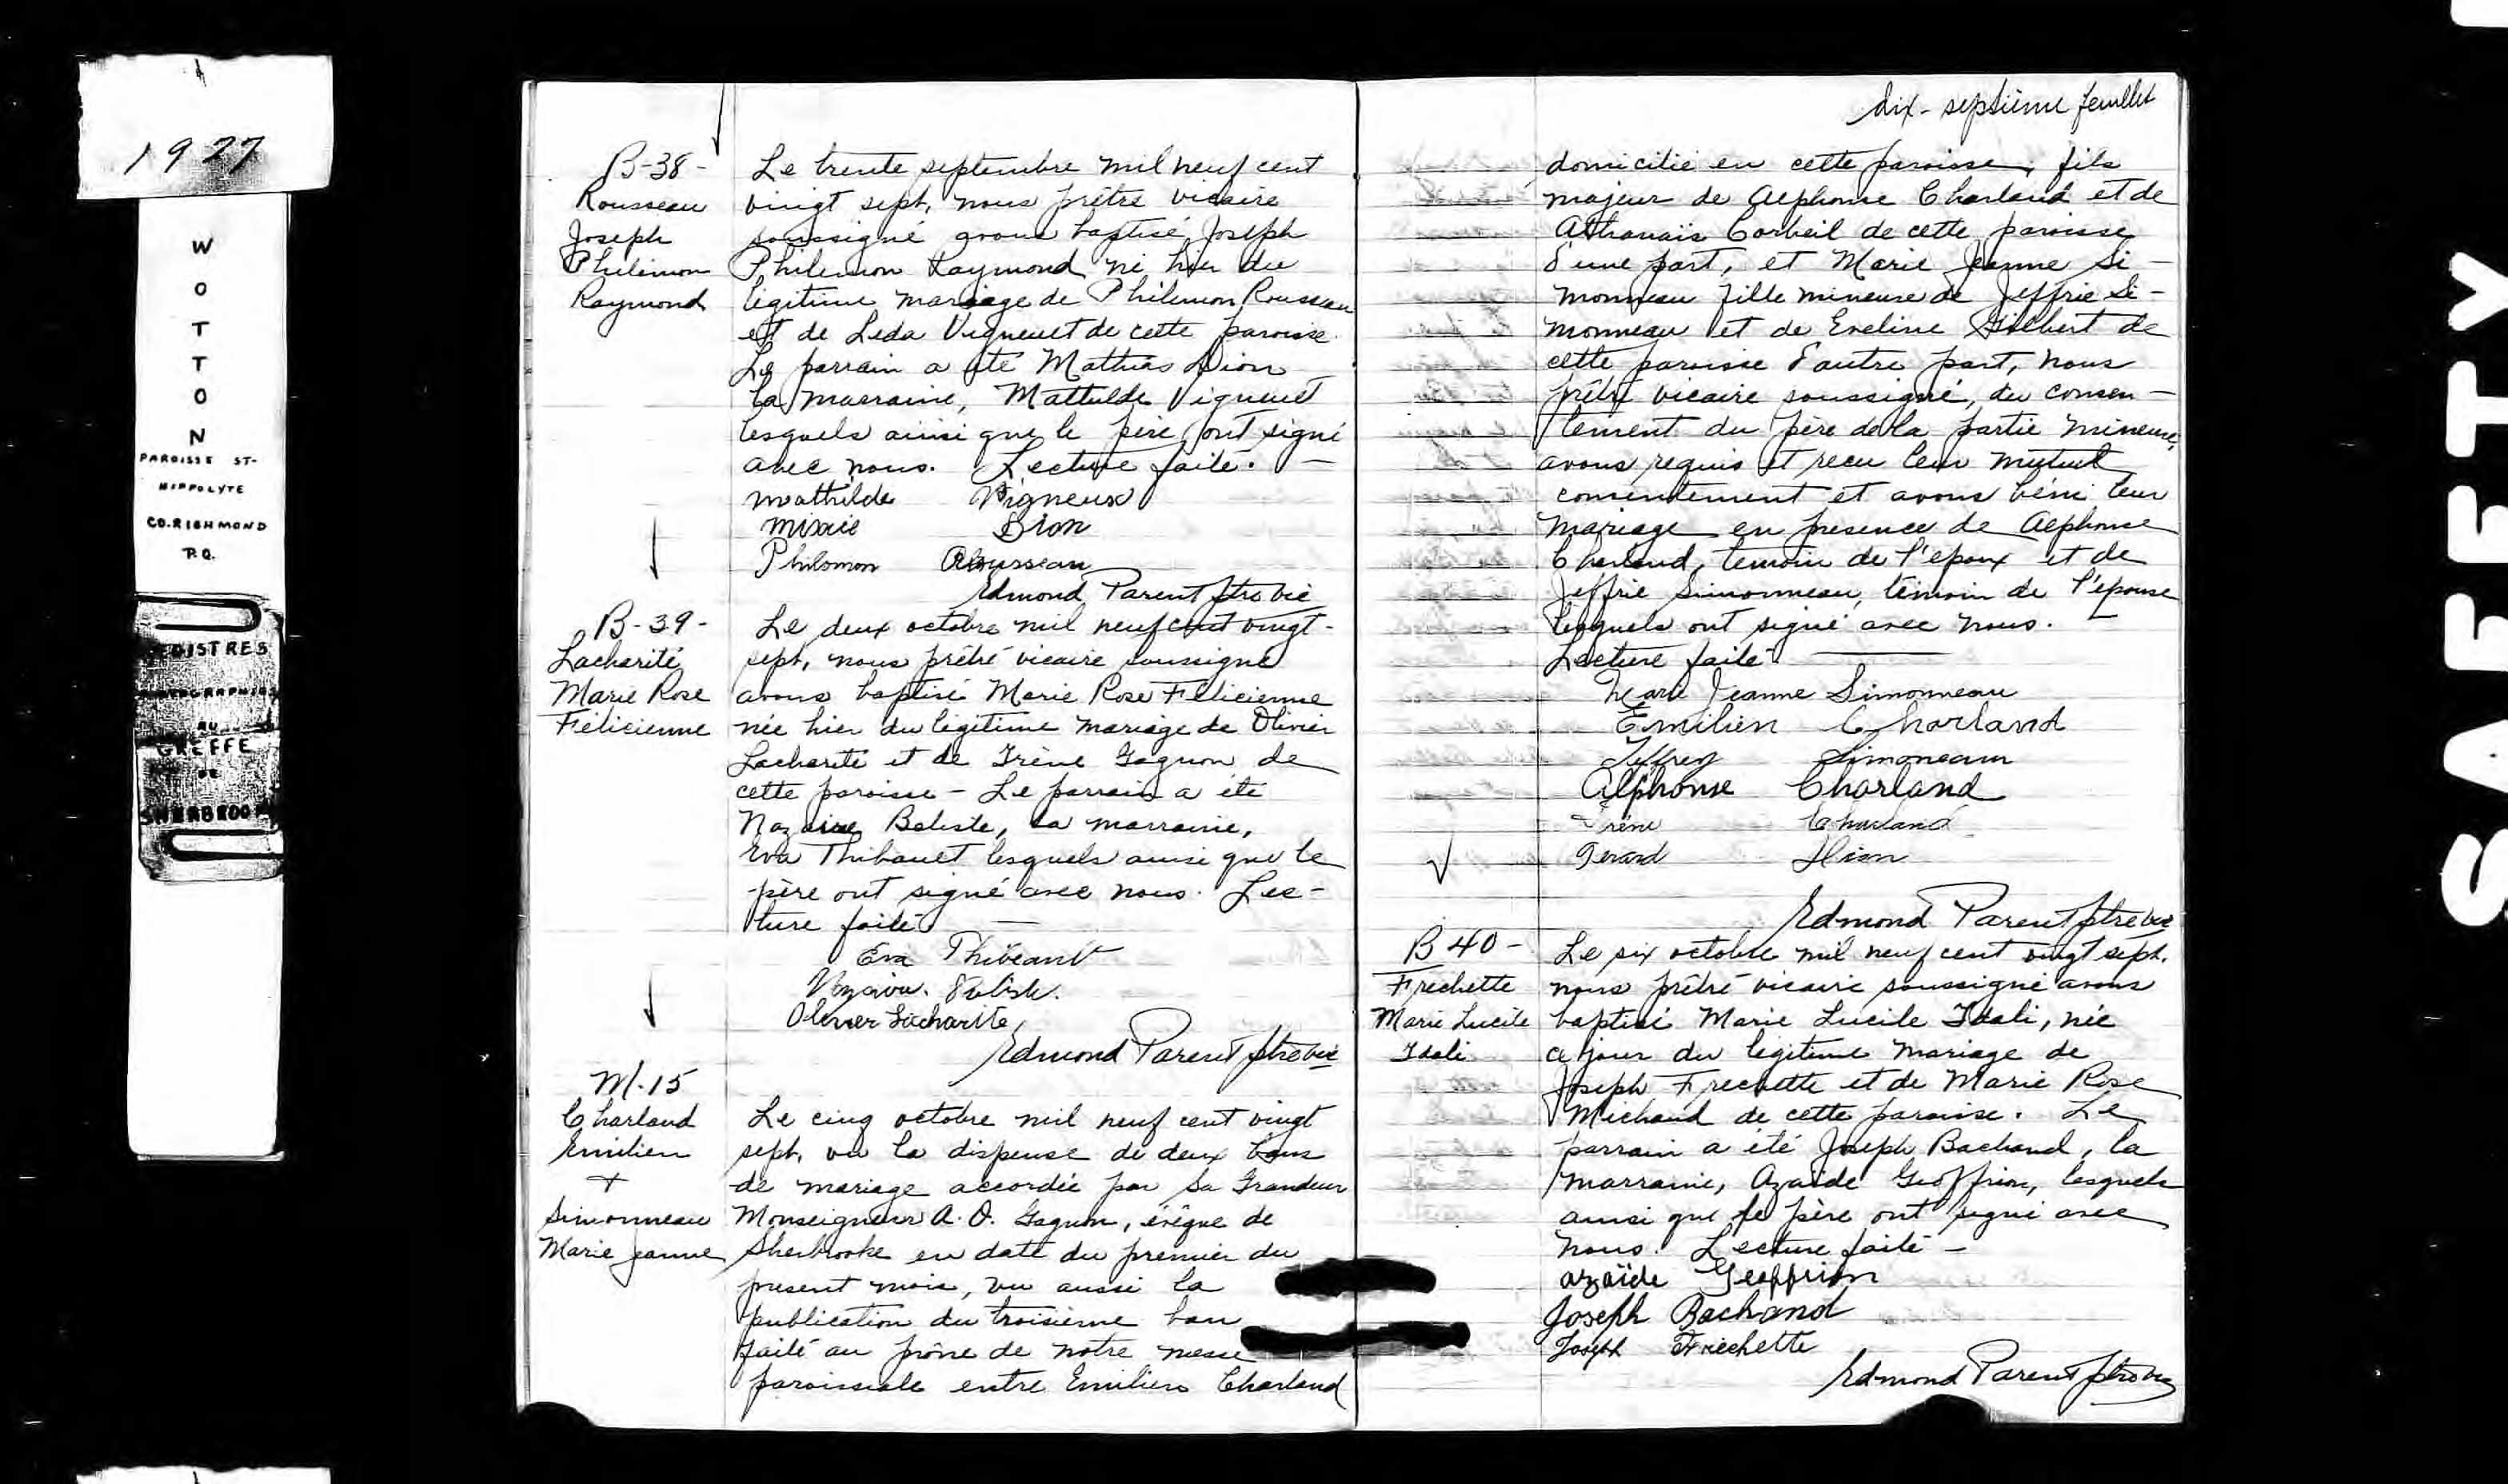 1927
W
O
T
T
O
N
PAROISSE ST-
HIPPOLYTE
CO. RICHMOND
P.Q.
REGISTRES
PHOTOGRAPHIÉS
AU
GREFFE
DE
SHERBROOKE
SAFETY
B-38-
Rousseau
Joseph
Philémon
Raymond
Le trente septembre mil neuf cent
vingt sept, nous prêtre vicaire
soussigné avons baptisé Joseph
Philemon Raymond né hier du
légitime mariage de Philemon Rousseau
et de Leda Vigneult de cette paroisse.
Le parrain a été Mathias Dion
la marraine, Mathilde Vigneult
lesquels ainsi que le père ont signé
avec nous. Lecture faite. —
Mathilde Vigneux
Dion
Philomon Rousseau
Edmond Parent ptre vic
B-39-
Lacharité
Marie Rose
Félicienne
Le deux octobre mil neuf cent vingt-
sept, nous prêtre vicaire soussigné
avons baptisé Marie Rose Félicienne
née hier du légitime mariage de Olivier
Lacharité et de Irène Gagnon de
cette paroisse - Le parrain a été
Nazaire Beliste, la marraine,
Eva Thibault lesquels ainsi que le
père ont signé avec nous. Lec-
ture faite —
Eva Thibeault
Olivier Lacharite
Edmond Parent ptre vic
M.15
Charland
Emilien
+
Simonneau
Marie Jeanne
Le cinq octobre mil neuf cent vingt
sept, vu la dispense de deux bans
de mariage accordée par Sa Grandeur
Monseigneur A. O. Gagnon, évêque de
Sherbrooke en date du premier du
présent mois, vu aussi la
publication du troisième ban
faite au prône de notre messe
paroissiale entre Emilien Charland
dix-septième feuillet
domicilié en cette paroisse, fils
majeur de Alphonse Charland et de
Athanaïs Corbeil de cette paroisse
d'une part, et Marie Jeanne Si-
monneau fille mineure de Jeffrie Si-
monneau et de Eveline Gilbert de
cette paroisse d'autre part, nous
prêtre vicaire soussigné, du consen-
tement du père de la partie mineure,
avons requis et reçu leur mutuel
consentement et avons béni leur
mariage en présence de Alphonse
Charland, témoin de l'époux et de
Jeffrie Simonneau, témoin de l'épouse
lesquels ont signé avec nous. —
Lecture faite —
Marie Jeanne Simonneau
Emilien Charland
Jeffrey Simoneau
Alphonse Charland
Irène Charland
Gerard Dion
Edmond Parent ptre vic
B 40-
Frechette
Marie Lucile
Idali
Le six octobre mil neuf cent vingt sept.
nous prêtre vicaire soussigné avons
baptisé Marie Lucile Idali, née
ce jour du légitime mariage de
Joseph Frechette et de Marie Rose
Michaud de cette paroisse. Le
parrain a été Joseph Bachand, la
marraine, Azaïde Geoffrion, lesquels
ainsi que le père ont signé avec
nous. Lecture faite —
azaïde Geoffrion
Joseph Bachand
Joseph Frechette
Edmond Parent ptre vic